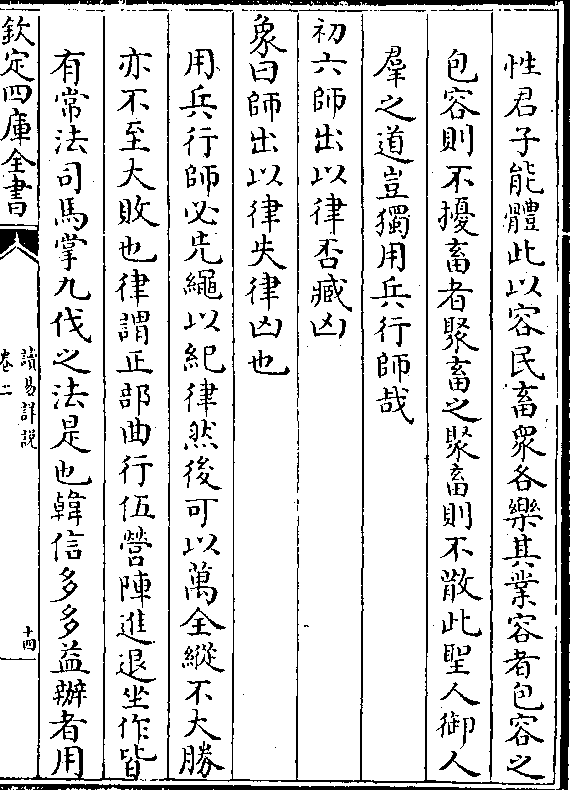 性君子能體此以容民畜衆各樂其業容者包容之
包容則不擾畜者聚畜之聚畜則不散此聖人御人
羣之道豈獨用兵行師哉
初六師出以律否臧凶
象曰師出以律失律凶也
用兵行師必先繩以紀律然後可以萬全縱不大勝
亦不至大敗也律謂正部曲行伍營陣進退坐作皆
有常法司馬掌九伐之法是也韓信多多益辦者用
欽定四庫全書
讀易詳說
卷二
十四